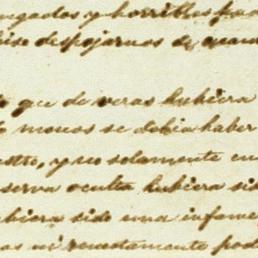 ngados y horribles
despojarnos de
que de veras hubiera
mosos se debia haber
estro, y no solamente en
serva oculta hubiera si
ubiera sido una infame
as ni remotamente pod